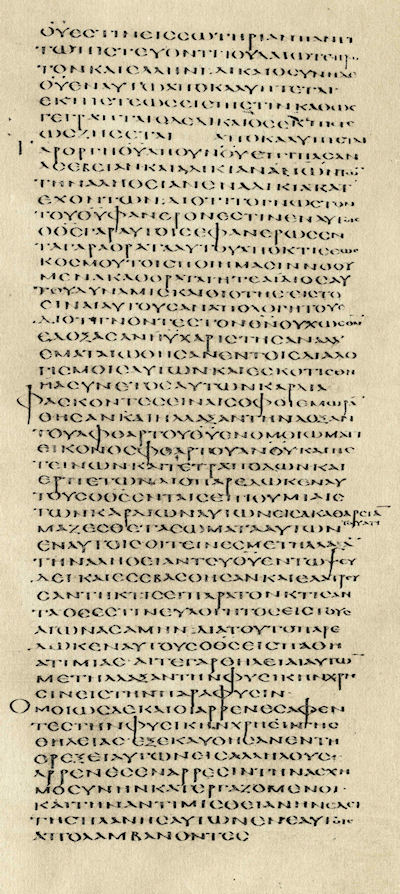 ΘῩΕϹΤΙΝΕΙϹϹΩΤΗΡΙΑΝΠΑΝΤΙ
ΤΩΠΙϹΤΕΥΟΝΤΙΙΟΥΔΑΙΩΤΕΠΡΩ
ΤΟΝΚΑΙΕΛΛΗΝΙΔΙΚΑΙΟϹΥΝΗΓΑΡ
ΘῩΕΝΑΥΤΩΑΠΟΚΑΛΥΠΤΕΤΑΙ
ΕΚΠΙϹΤΕΩϹΕΙϹΠΙϹΤΙΝΚΑΘΩϹ
ΓΕΓΡΑΠΤΑΙΟΔΕΔΙΚΑΙΟϹΕΚΠΙϹΤΕ
ΩϹΖΗϹΕΤΑΙ ΑΠΟΚΑΛΥΠΤΕΤΑΙ
ΓΑΡΟΡΓΗΘῩΑΠΟΥΝΟῩΕΠΙΠΑϹΑΝ
ΑϹΕΒΕΙΑΝΚΑΙΑΔΙΚΙΑΝΑΝΩΝΤΩ̅
ΤΗΝΑΛΗΘΕΙΑΝΕΝΑΔΙΚΙΑΚΑΤ
ΕΧΟΝΤΩΝΔΙΟΤΙΤΟΓΝΩϹΤΟΝ
ΤΟΥΘῩΦΑΝΕΡΟΝΕϹΤΙΝΕΝΑΥΤΟΙϹ
ΟΘϹ̅ΓΑΡΑΥΤΟΙϹΕΦΑΝΕΡΩϹΕΝ
ΤΑΓΑΡΑΟΡΑΤΑΑΥΤΟΥΑΠΟΚΤΙϹΕΩϹ
ΚΟϹΜΟΥΤΟΙϹΠΟΙΗΜΑϹΙΝΝΟΟΥ
ΜΕΝΑΚΑΘΟΡΑΤΑΙΗΤΕΑΙΔΙΟϹΑΥ
ΤΟΥΔΥΝΑΜΙϹΚΑΙΘΕΙΟΤΗϹΕΙϹΤΟ
ΕΙΝΑΙΑΥΤΟΥϹΑΝΑΠΟΛΟΓΗΤΟΥϹ
ΔΙΟΤΙΓΝΟΝΤΕϹΤΟΝΘΝ̅ΟΥΧΩϹΘΝ̅
ΕΔΟΞΑϹΑΝΗΥΧΑΡΙϹΤΗϹΑΝΑΛΛΑ
ΕΜΑΤΑΙΩΘΗϹΑΝΕΝΤΟΙϹΔΙΑΛΟ
ΓΙϹΜΟΙϹΑΥΤΩΝΚΑΙΕϹΚΟΤΙϹΘΗ
ΗΑϹΥΝΕΤΟϹΑΥΤΩΝΚΑΡΔΙΑ
ΦΑϹΚΟΝΤΕϹΕΙΝΑΙϹΟΦΟΙΕΜΩΡΑ̅
ΘΗϹΑΝΚΑΙΗΛΛΑΞΑΝΤΗΝΔΟΞΑΝ
ΤΟΥΑΦΘΑΡΤΟΥΘῩΕΝΟΜΟΙΩΜΑΤΙ
ΕΙΚΟΝΟϹΦΘΑΡΤΟΥΑΝΟῩΚΑΙΠΕ
ΤΕΙΝΩΝΚΑΙΤΕΤΡΑΠΟΔΩΝΚΑΙ
ΕΡΠΕΤΩΝΔΙΟΠΑΡΕΔΩΚΕΝΑΥ
ΤΟΥϹΟΘϹ̅ΕΝΤΑΙϹΕΠΙΘΥΜΙΑΙϹ
ΤΩΝΚΑΡΔΙΩΝΑΥΤΩΝΕΙϹΑΚΑΘΑΡϹΙΑ̅
ΤΟΥΑΤΙ
ΜΑΖΕϹΘΕΤΑϹΩΜΑΤΑΑΥΤΩΝ
ΕΝΑΥΤΟΙϹΟΙΤΕΙΝΕϹΜΕΤΗΛΛΑΞΑ̅
ΤΗΝΑΛΗΘΕΙΑΝΤΟΥΘῩΕΝΤΩΨΕΥ
ΔΕΙΚΑΙΕϹΕΒΑϹΘΗϹΑΝΚΑΙΕΛΑΤΡΕΥ
ϹΑΝΤΗΚΤΙϹΕΙΠΑΡΑΤΟΝΚΤΙϹΑΝ
ΤΑΟϹΕϹΤΙΝΕΥΛΟΓΗΤΟϹΕΙϹΤΟΥϹ
ΑΙΩΝΑϹΑΜΗΝΔΙΑΤΟΥΤΟΠΑΡΕ
ΔΩΚΕΝΑΥΤΟΥϹΟΘϹ̅ΕΙϹΠΑΘΗ
ΑΤΙΜΙΑϹΑΙΤΕΓΑΡΘΗΛΕΙΑΙΑΥΤΩ̅
ΜΕΤΗΛΛΑΞΑΝΤΗΝΦΥϹΙΚΗΝΧΡΗ
ϹΙΝΕΙϹΤΗΝΠΑΡΑΦΥϹΙΝ
ΟΜΟΙΩϹΔΕΚΑΙΟΙΑΡΡΕΝΕϹΑΦΕΝ
ΤΕϹΤΗΝΦΥϹΙΚΗΝΧΡΗϹΙΝΤΗϹ
ΘΗΛΕΙΑϹΕΞΕΚΑΥΘΗϹΑΝΕΝΤΗ
ΟΡΕΞΕΙΑΥΤΩΝΕΙϹΑΛΛΗΛΟΥϹ
ΑΡΡΕΝΕϹΕΝΑΡΡΕϹΙΝΤΗΝΑϹΧΗ
ΜΟϹΥΝΗΝΚΑΤΕΡΓΑΖΟΜΕΝΟΙ
ΚΑΙΤΗΝΑΝΤΙΜΙϹΘΕΙΑΝΗΝΕΔΕΙ
ΤΗϹΠΛΑΝΗϹΑΥΤΩΝΕΝΕΑΥΤΟΙϹ
ΑΠΟΛΑΜΒΑΝΟΝΤΕϹ